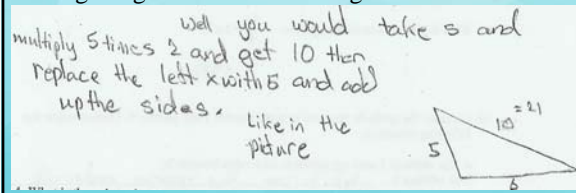 well you would take 5 and
multiply 5 times 2 and get 10 then
replace the left x with 5 and add
up the sides.
Like in the
picture
= 21
10
5
6